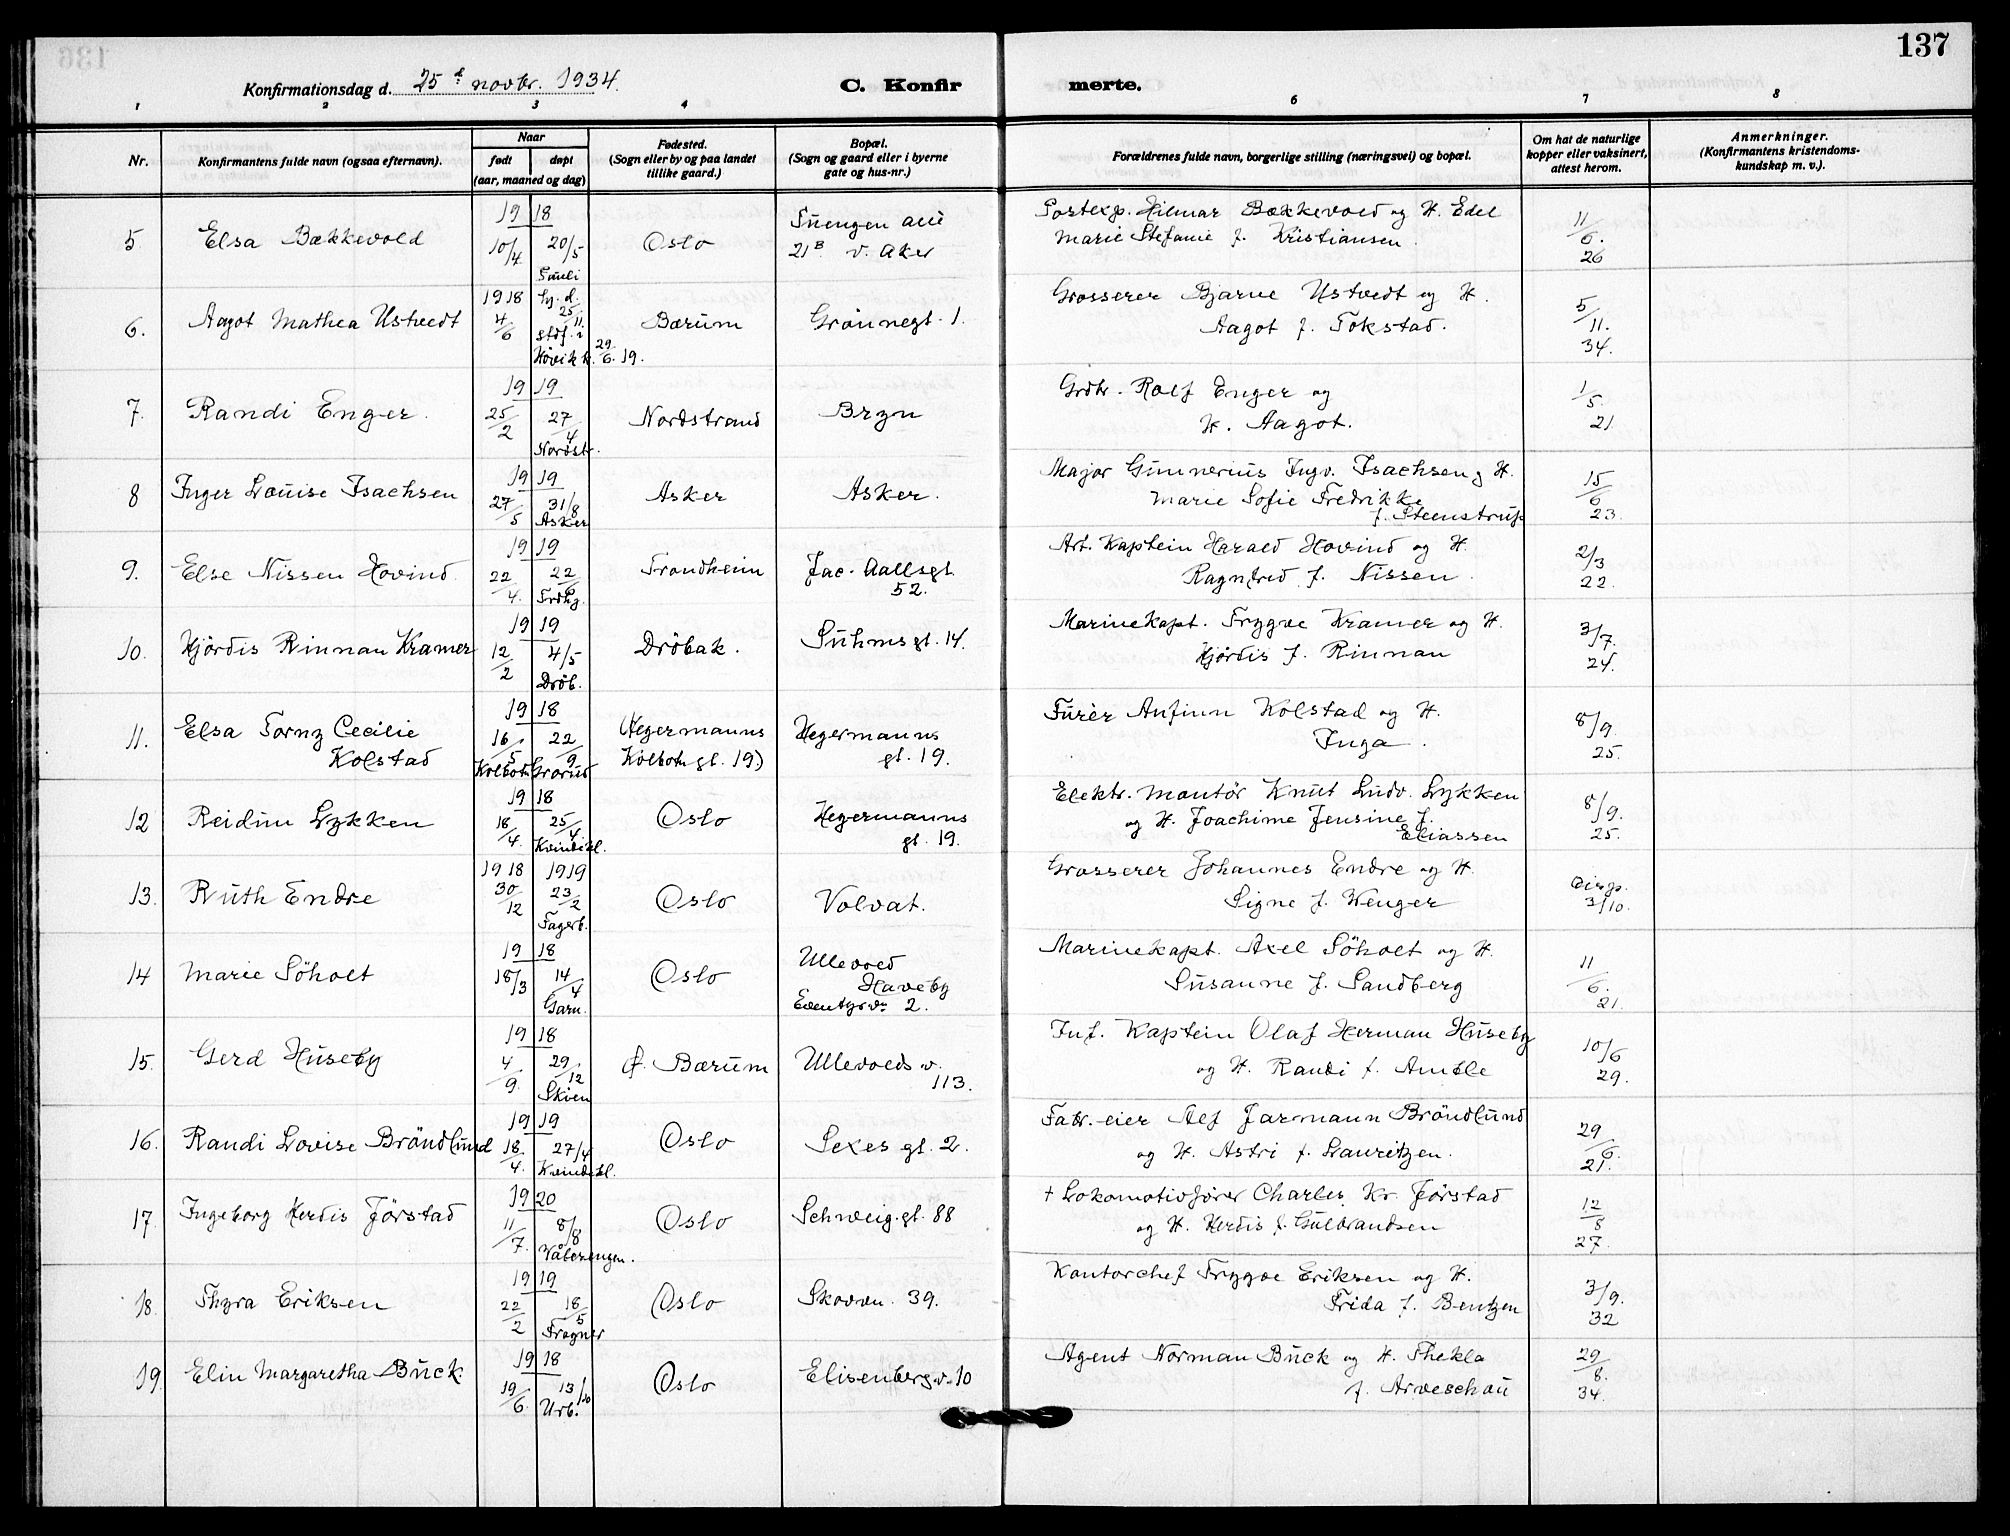 137
Konfirmationsdag d. 25d novbr. 1934.
C. Konfirmerte.
1 2 3 4 6 7 8
Nr.
Konfirmantens fulde navn (ogsaa efternavn).
Naar
født døpt
(aar, maaned og dag)
Fødested.
(Sogn eller by og paa landet
tillike gaard.)
Bopæl.
(Sogn og gaard eller i byerne
gate og hus-nr.)
Forældrenes fulde navn, borgerlige stilling (næringsvei) og bopæl.
Om hat de naturlige
kopper eller vaksinert,
attest herom.
Anmerkninger.
(Konfirmantens kristendoms-
kundskap m. v.).
5. Elsa Bækkevold 19 18 10/4 20/5 Pauli Oslo Tuengen allé
21B v. Aker
Postexp. Hilmar Bækkevold og H. Edel
Marie Stefanie f. Kristiansen. 11/6. 26
6. Aagot Mathea Ustvedt 1918 4/6 25/11 stdf. i Høvik k. 29/6. 19. Bærum Grønnegt. 1.
Grosserer Bjarne Ustvedt og H.
Aagot f. Tokstad. 5/11. 34.
7. Randi Enger. 19 19 25/2 27/4 Nordstr. Nordstrand Bryn
Grdbr. Rolf Enger og
H. Aagot. 1/5. 21
8 Inger Louise Isachsen 19 19 27/5 31/8 Asker Asker Asker.
Major Gunnerius Ingv. Isachsen og H.
Marie Sofie Fredrikke
f. Steenstrup 15/6 23.
9. Else Nissen Hovind. 19 19 22/4. 22/6 Trondheim Jac. Aallsgt.
52.
Art. Kaptein Harald Hovind og H.
Ragnfred f. Nissen. 2/3 22.
10. Hjördis Rinnan Kramer 19 19 12/2 4/5 Dröb. Dröbak. Suhmsgt. 14.
Marinekapt. Trygve Kramer og H.
Hjördis f. Rinnan 3/7. 24.
11. Elsa Torny Cecilie
Kolstad 19 18 16/5 22/9 Kolbotn Grorud Hegermanns
Kolbotn gt. 19.) Hegermanns
gt. 19.
Furér Anfinn Kolstad og H.
Inga. 8/9. 25.
12 Reidun Lykken 19 18 18/4. 25/4. Kvindekl. Oslo Hegermanns
gt. 19.
Elektr. montör Knut Ludv. Lykken
og H. Joachime Jensine f.
Eliassen 8/9. 25.
13. Ruth Endre 1918 1919 30/12 23/2 Fagerb. Oslo Volvat.
Grosserer Johannes Endre og H.
Signe f. Wenger Disp. 3/10.
14 Marie Söholt 19 18 18/3 14/4 Garn. Oslo Ullevold
Haveby
Eventyrvn 2.
Marinekapt. Axel Söholt og H.
Susanne f. Sandberg 11/6. 21.
15. Gerd Huseby 19 18 4/9. 29/12 Skien Bærum Ullevolds v.
113.
Inf. Kaptein Olaf Herman Huseby
og H. Randi f. Amble 10/6 29.
16. Randi Lovise Bröndlund 19 19 18/4. 27/4 Kvindekl. Oslo Sexes gt. 2.
Fabr.eier Alf Jarmann Bröndlund
og H. Astri f. Lauritzen. 29/6. 21.
17. Ingeborg Herdis Jörstad 19 20 11/7. 8/8 Vålerengen. Oslo Schweig.gt. 88
† Lokomotivförer Charles Kr. Jörstad
og H. Herdis f. Gulbrandsen 12/8 27.
18. Thyra Eriksen 19 19 22/2 18/5 Frogner Oslo Skovvn. 39.
Kontorchef Trygve Eriksen og H.
Frida f. Bentzen 3/9. 32
19. Elin Margaretha Buck. 19 18 19/6. 13/10 Urb. Oslo Elisenberg v. 10
Agent Norman Buck og H. Thekla
f. Arveschou 29/8. 34.